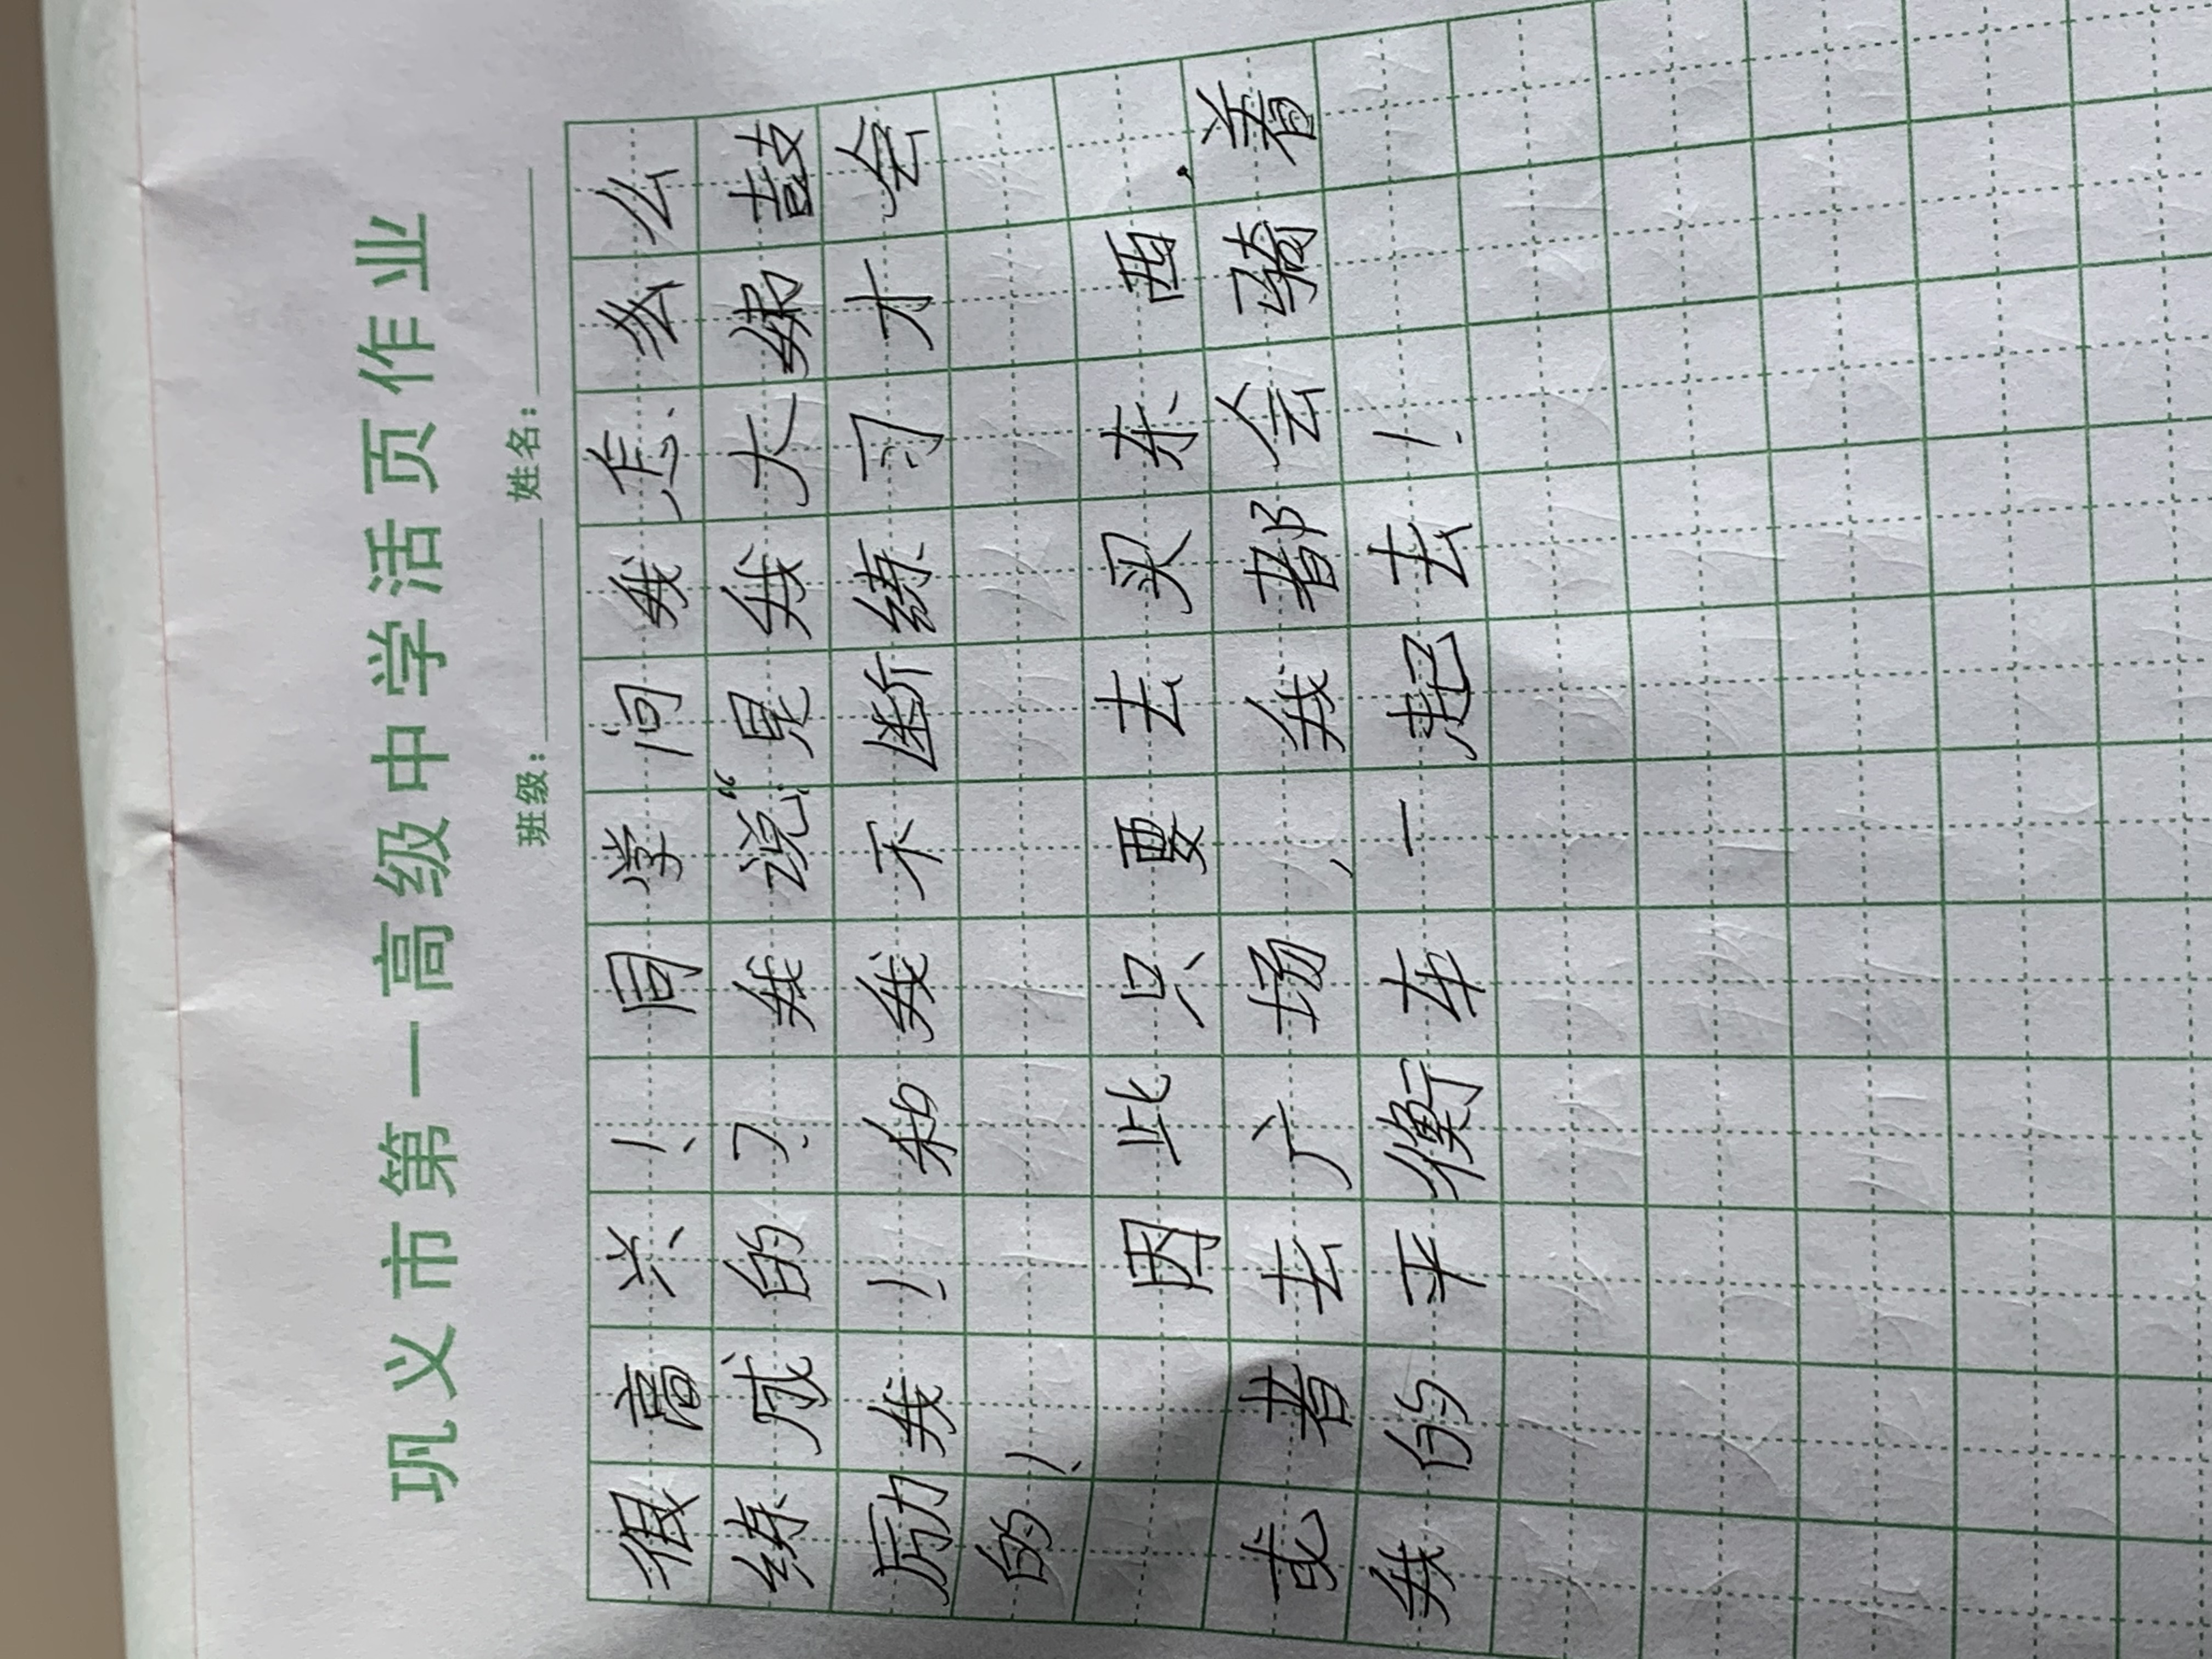 巩义市第一高级中学活页作业
班级： 姓名：
很高兴！同学问我怎么
练成的？我说：“是我大姊鼓
励我！和我不断练习才会
的！
因此只要去买东西，
或者去广场，我都会骑着
我的平衡车一起去！